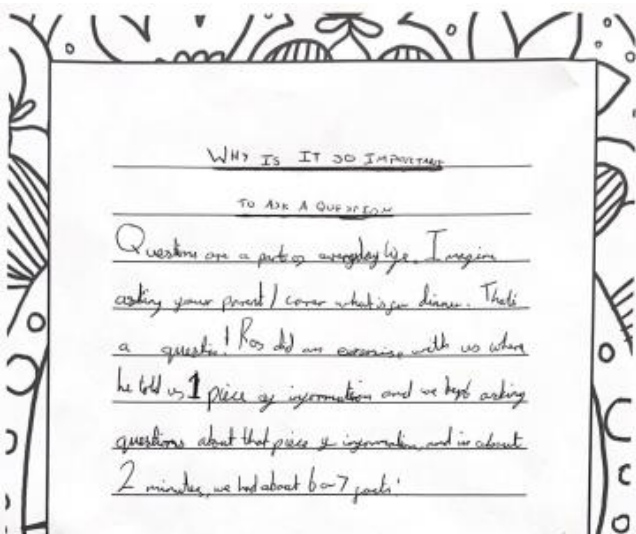 WHY IS IT SO IMPORTANT
TO ASK A QUESTION
Questions are a part of everyday life. Imagine
asking your parent/carer what's for dinner. That's
a question! Ros did an exercise with us where
he told us 1 piece of information and we kept asking
questions about that piece of information, and in about
2 minutes, we had about 6 or 7 facts!